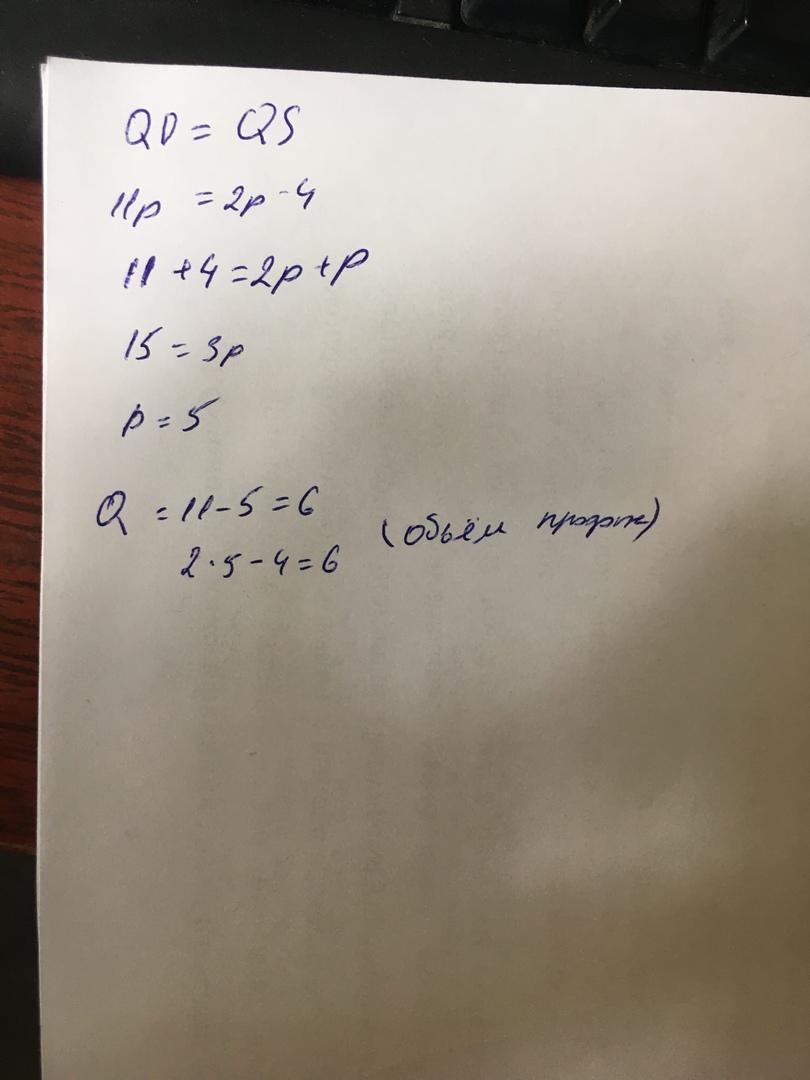 QD = QS
11p = 2p - 4
11 + 4 = 2p + p
15 = 3p
p = 5
Q = 11 - 5 = 6
2·5 - 4 = 6 (объём продаж)